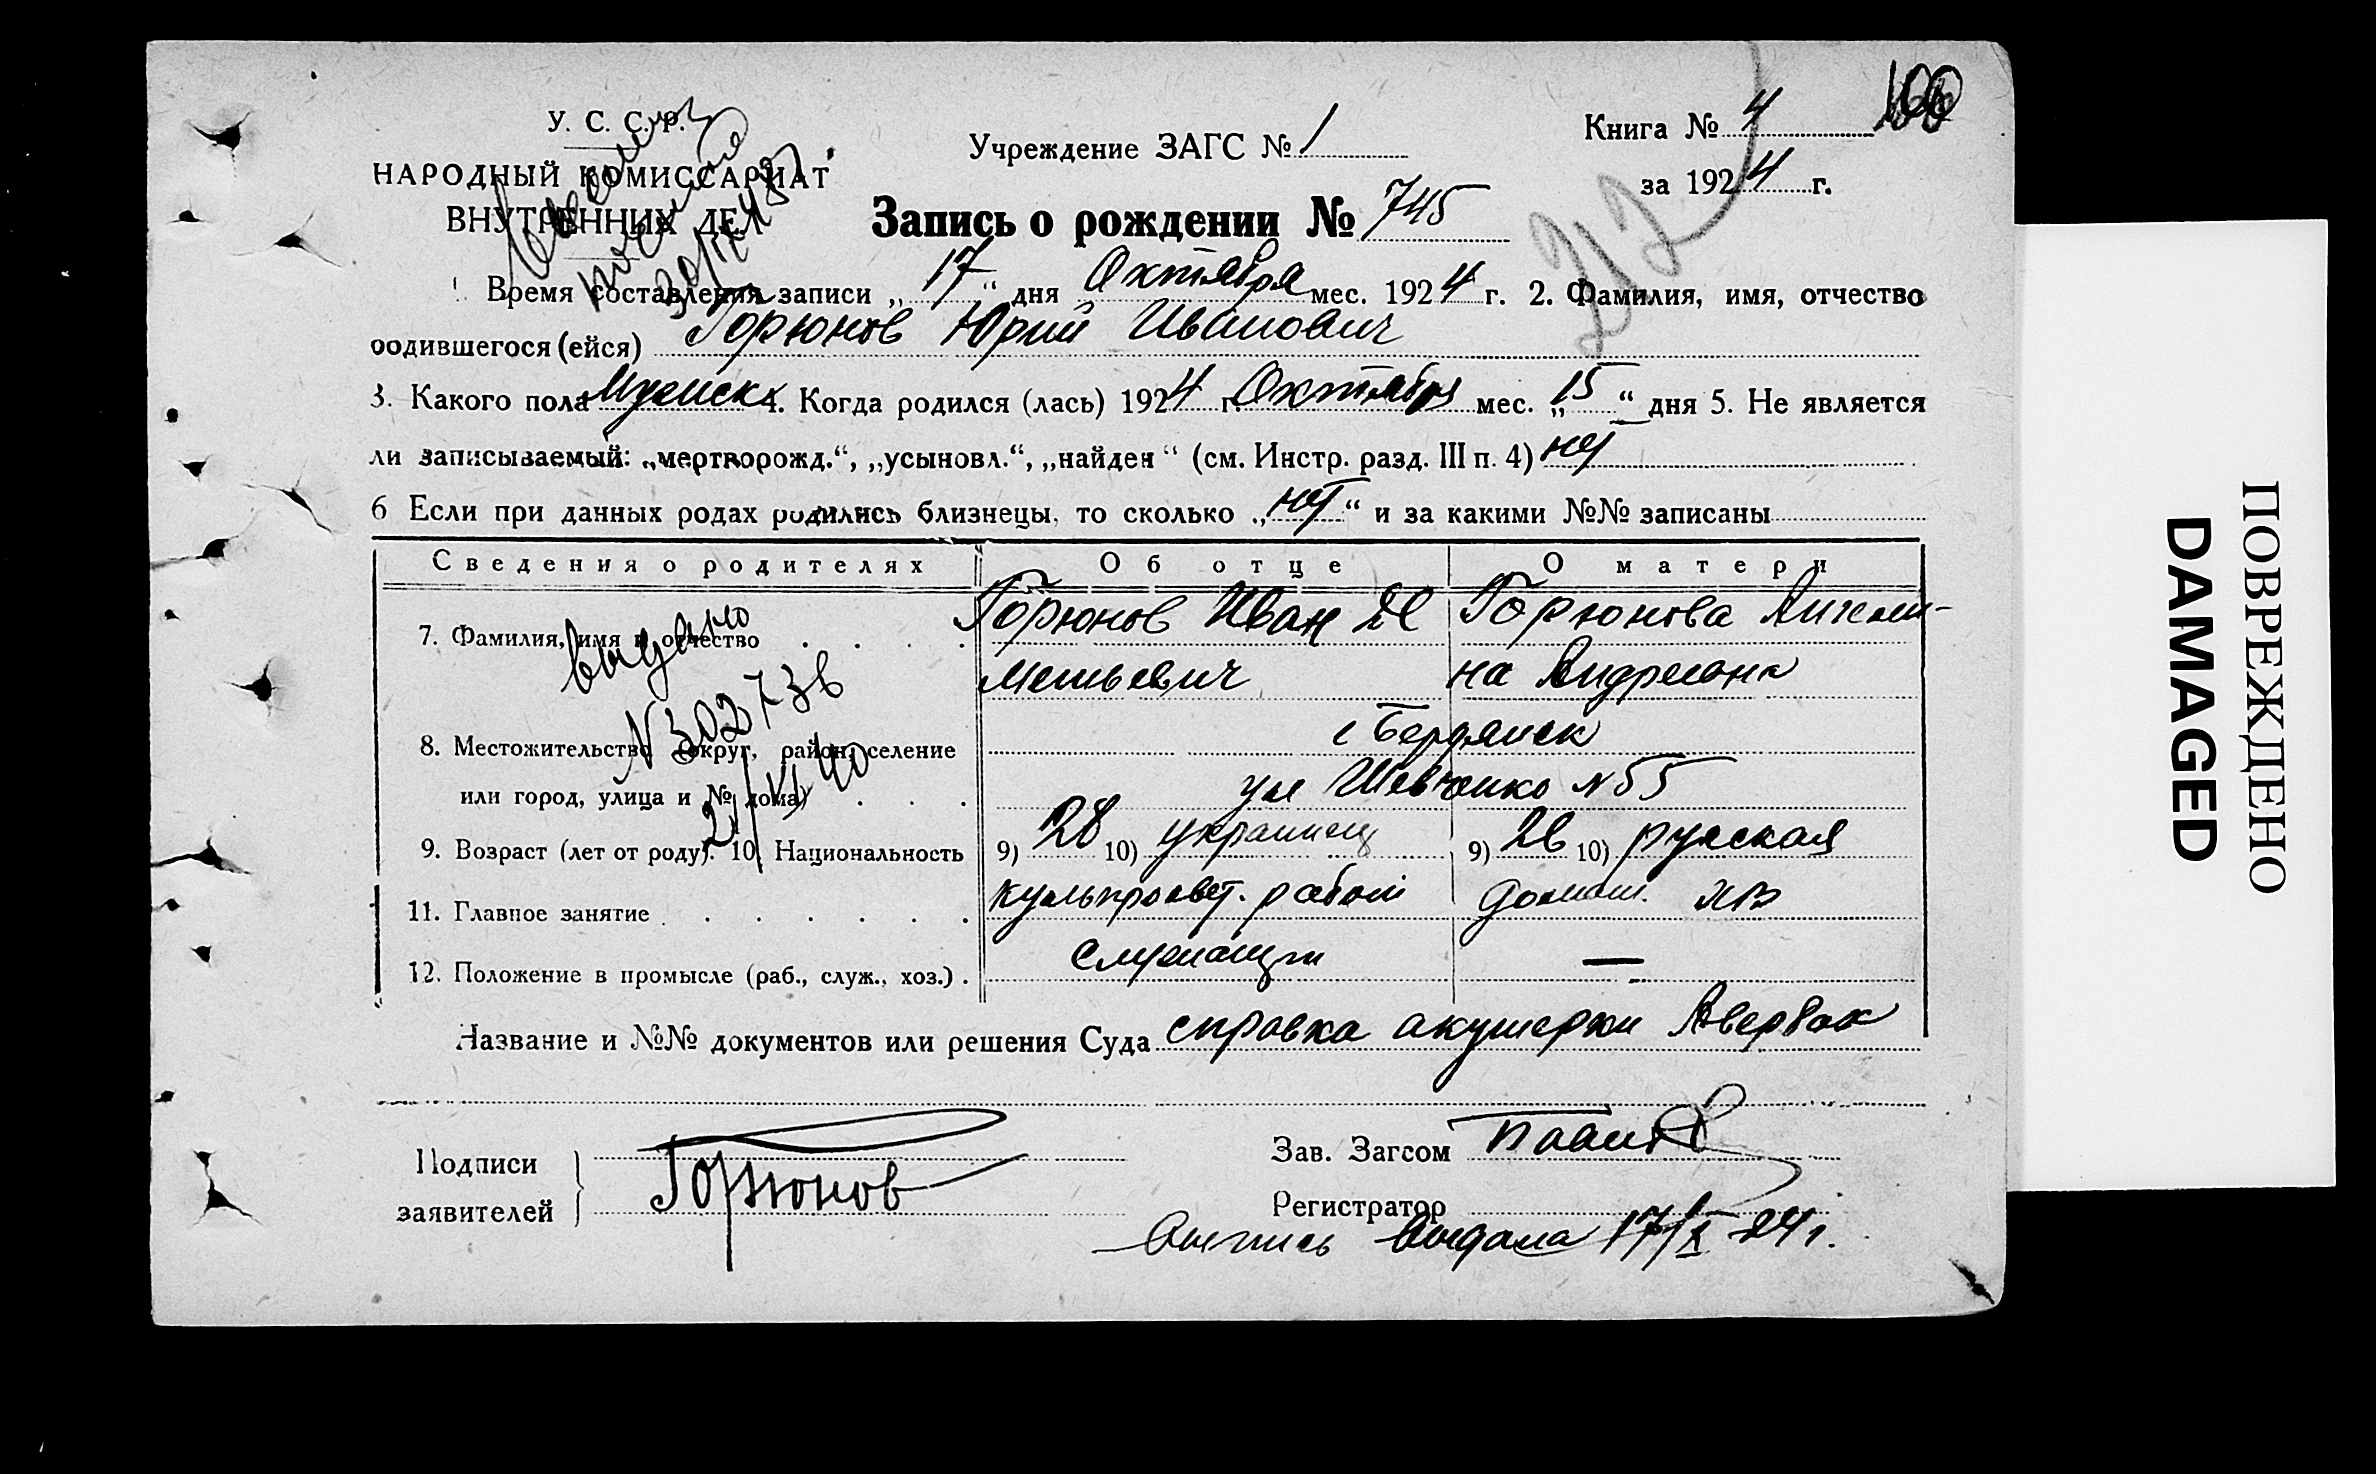 У. С. С. Р.
НАРОДНЫЙ КОМИССАРИАТ
ВНУТРЕННИХ ДЕЛ
Учреждение ЗАГС № 1
Книга № 4
за 1924 г.
212
Запись о рождении № 745
Время составления записи „17“ дня Октября мес. 1924 г. 2. Фамилия, имя, отчество
родившегося (ейся) Горюнов Юрий Иванович
3. Какого пола Мужск 4. Когда родился (лась) 1924 г. Октября мес. „15“ дня 5. Не является
ли записываемый: „мертворожд.“, „усыновл.“, „найден“ (см. Инстр. разд. III п. 4) нет
6 Если при данных родах родились близнецы, то сколько „нет“ и за какими №№ записаны
Сведения о родителях Об отце О матери
7. Фамилия, имя и отчество Горюнов Иван Де Горюнова Ангели-
ментьевич на Андреевна
выдано
N 302736
21/VI 40
8. Местожительство округ, район, селение г Бердянск
или город, улица и № дома) ул Шевченко № 55
9. Возраст (лет от роду). 10. Национальность 9) 28 10) украинец 9) 26 10) русская
11. Главное занятие культпросвет. работ домаш. хоз
12. Положение в промысле (раб., служ., хоз.) служащий —
Название и №№ документов или решения Суда справка акушерки
Подписи
заявителей Горюнов
Зав. Загсом
Регистратор
Выпись выдана 17/X 24 г.
ПОВРЕЖДЕНО
DAMAGED